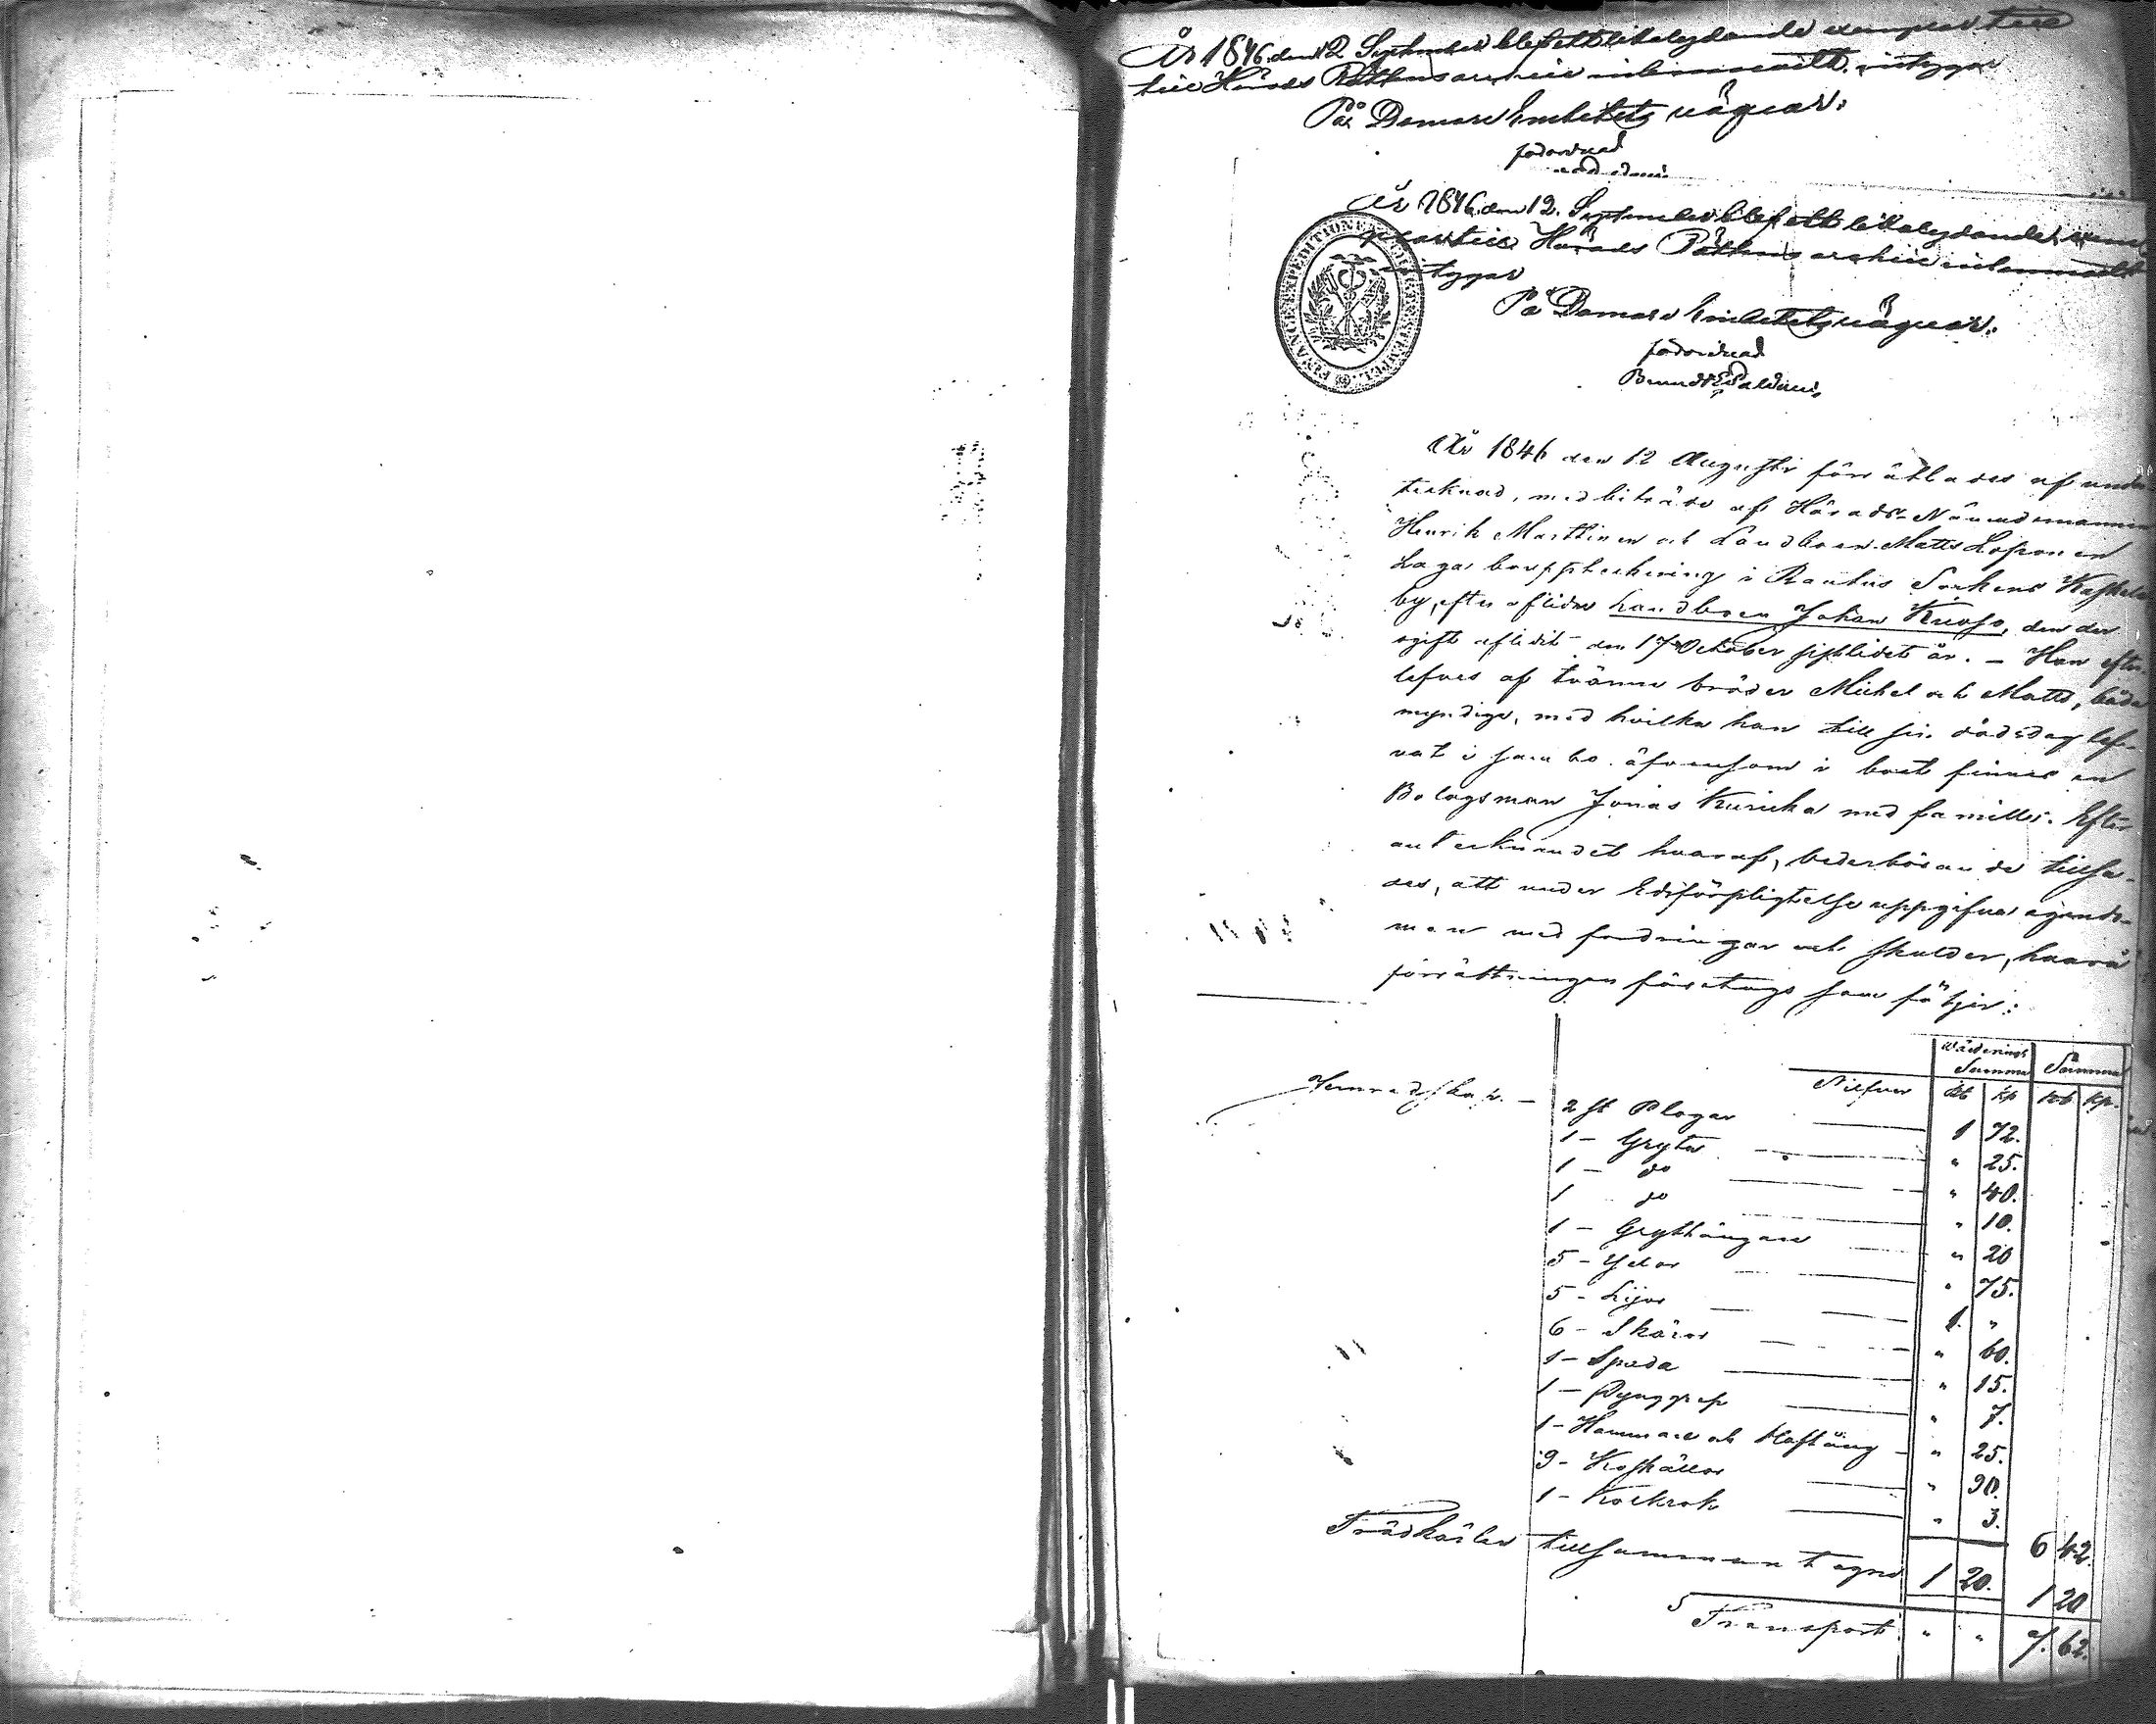 År 1846 den 12 September blef ett likalydande exemplar till
till Härads Rättens archiv inlemnadt, intygar
På Domare Embetets vägnar:
förordnad
År 1846 den 12 September blef ett likalydande exem
plar till Härads Rättens archiv inlemnadt
intygar
På Domare Embetets vägnar.
förordnad
FINANCE EXPEDITIONENS STEMPEL
År 1846 den 12 Augusti förrättades af under-
tecknad, med biträde af Härads-Nämndemannen
Henrik Marttinen och Landboen Matts Loponen
Laga bouppteckning i Rautus Sockens
by, efter aflidne Landboen Johan Kuosa, den der
ogift aflidit den 17 October sistlidet år. – Han efter-
lefves af tvänne bröder Michel och Matts, båda
myndige, med hvilka han till sin dödsdag lef-
vat i sam bo. äfvensom i boet finnes en
Bolagsman Jonas Kuricka med familler. Efter
antecknandet hvaraf, vederbörande tillsa-
des, att under Edsförpligtelse uppgifva egendo-
men med fordringar och skulder, hvarå
förrättningen företogs som följer:
Wärderings Summa
Summa
Silfver Rb kp Rub kp.
Jernredskap. – 2 st Plogar 1 72.
1 – Gryta " 25.
1 – do " 40.
1 do " 10.
1 – Grythängare " 20
5 – Yxor " 75.
5 – Lijor 1 "
6 – Skäror " 60.
1 – Spada " 15.
1 – Dynggrep " 7.
1 – Hammare och Hoftång – " 25.
9 – Koskällor " 90.
1 – Kolkrok " 3. 6 42.
Trädkärler tillsamman tagne 1 20. 1 20
Transport " " 7. 62.